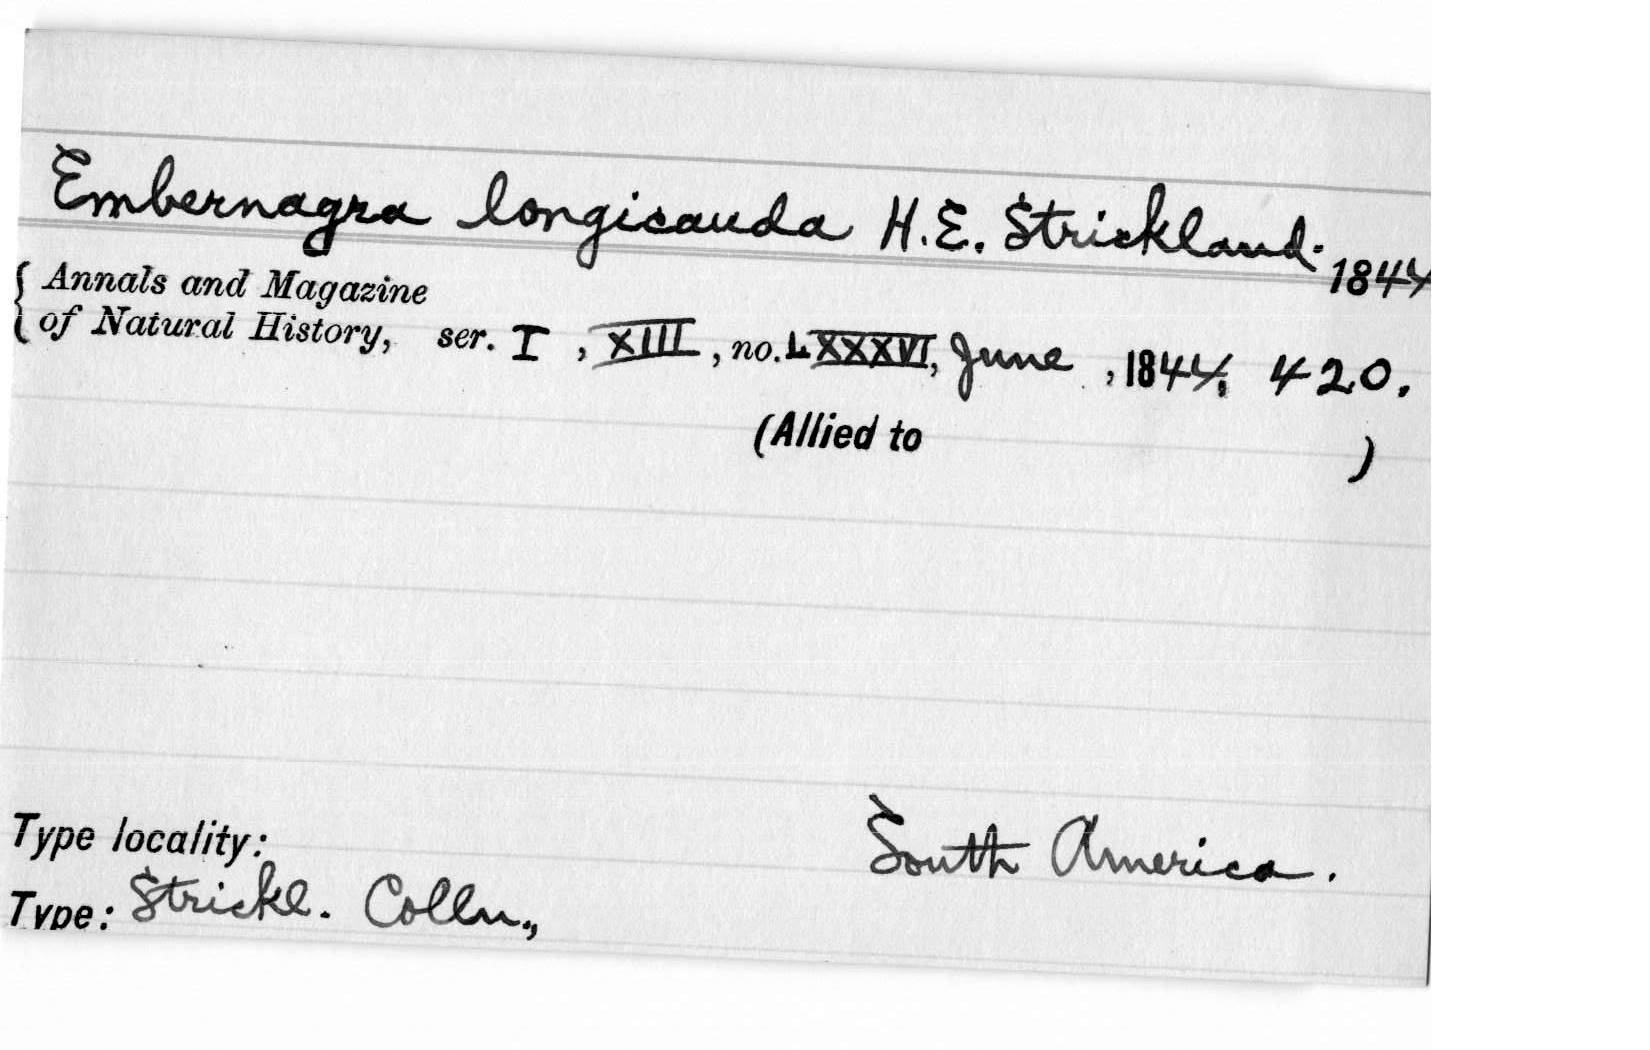 Embernagra longicauda H.E. Strickland. 1844
{ Annals and Magazine
of Natural History, ser. I, XIII, no. LXXXVI, June, 1844, 420.
(Allied to )
Type locality: South America.
Type: Strickl. Colln.,